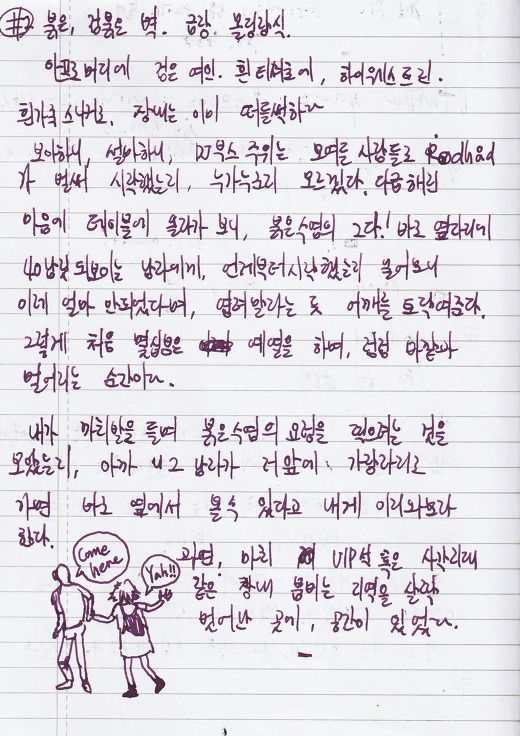 #2 붉은, 검붉은 벽. 금장 몰딩장식.
아프로머리에 검은 여인. 흰 티셔츠에, 하이웨스트진.
흰가죽 스니커즈. 장내는 이미 떠들썩하다
보아하니, 설마하니, DJ부스 주위는 모여든 사람들로 Roodhad
가 벌써 시작했는지, 누가누군지 모르겠다. 다급해진
마음에 테이블에 올라가 보니, 붉은수염의 그다! 바로 옆자리에
40남짓 되보이는 남자에게, 언제부터 시작했는지 물어보니
이제 얼마 안되었다며, 염려말라는 듯 어깨를 토닥여준다.
그렇게 처음 몇십분은 예열을 하며, 점점 바깥과
멀어지는 순간이다.
내가 까치발을 들며 붉은수염의 모습을 찍으려는 것을
보았는지, 아까 그 남자가 저 앞에 가장자리로
가면 바로 옆에서 볼 수 있다고 내게 이리와보라
한다.
과연, 마치 VIP석 혹은 사각지대
같은 장내 붐비는 지역을 살짝
벗어난 곳에, 공간이 있었다.
Come
here
Yah!!